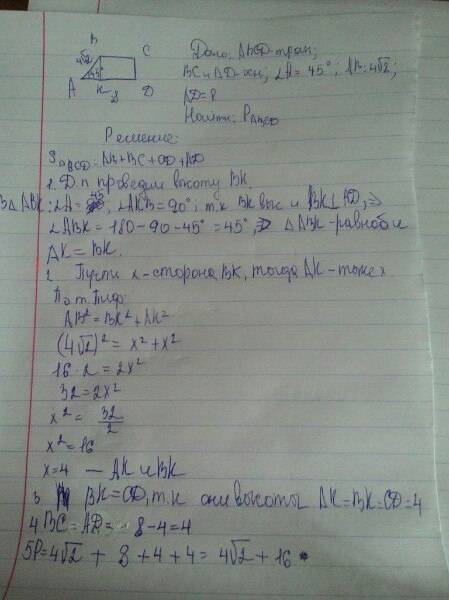 B
C
4√2
45°
A K D
8
Дано: ABCD-трап;
BC и AD-осн; ∠A=45°; AB=4√2;
AD=8
Найти: P ABCD
Решение:
P ABCD=AB+BC+CD+AD
1. Д.п проведем высоту BK.
В △ABK: ∠A=45°, ∠AKB=90°; т.к BK выс и BK⊥AD, ⇒
∠ABK=180-90-45°=45°, ⇒ △ABK-равноб и
AK=BK.
2. Пусть x-сторона BK, тогда AK-тоже x
По т. Пиф:
AB²=BK²+AK²
(4√2)²=x²+x²
16·2=2x²
32=2x²
x²=32/2
x²=16
x=4 — AK и BK
3 BK=CD, т.к они высоты AK=BK=CD=4
4 BC=AD= 8-4=4
5 P=4√2+8+4+4=4√2+16